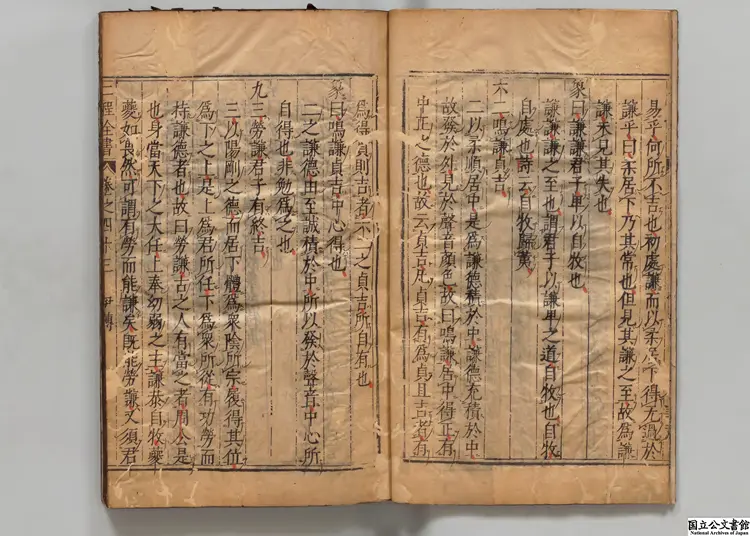 易乎何所不吉也初處謙而以柔居下得无過於
謙乎曰柔居下乃其常也但見其謙之至故為謙
謙未見其失也
象曰謙謙君子卑以自牧也
謙謙謙之至也謂君子以謙卑之道自牧也自牧
自處也詩云自牧歸荑
六二鳴謙貞吉
二以柔順居中是為謙德積於中謙德充積於中
故發於外見於聲音顏色故曰鳴謙居中得正有
中正之德也故云貞吉凡貞吉有為貞且吉者有
為得貞則吉者六二之貞吉所自有也
象曰鳴謙貞吉中心得也
二之謙德由至誠積於中所以發於聲音中心所
自得也非勉為之也
九三勞謙君子有終吉
三以陽剛之德而居下體為衆陰所宗履得其位
為下之上是上為君所任下為衆所從有功勞而
持謙德者也故曰勞謙古之人有當之者周公是
也身當天下之大任上奉幼弱之主謙恭自牧夔
夔如畏然可謂有勞而能謙矣既能勞謙又須君
二程全書 卷之四十三 伊傳
国立公文書館
National Archives of Japan